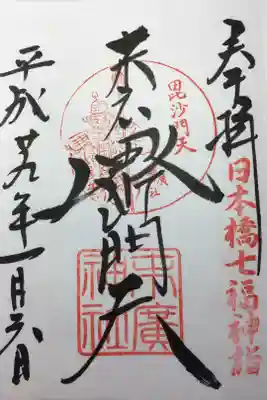 奉拝
日本橋七福神詣
毘沙門天
末広
毘沙門天
末廣神社
平成廿九年一月六日